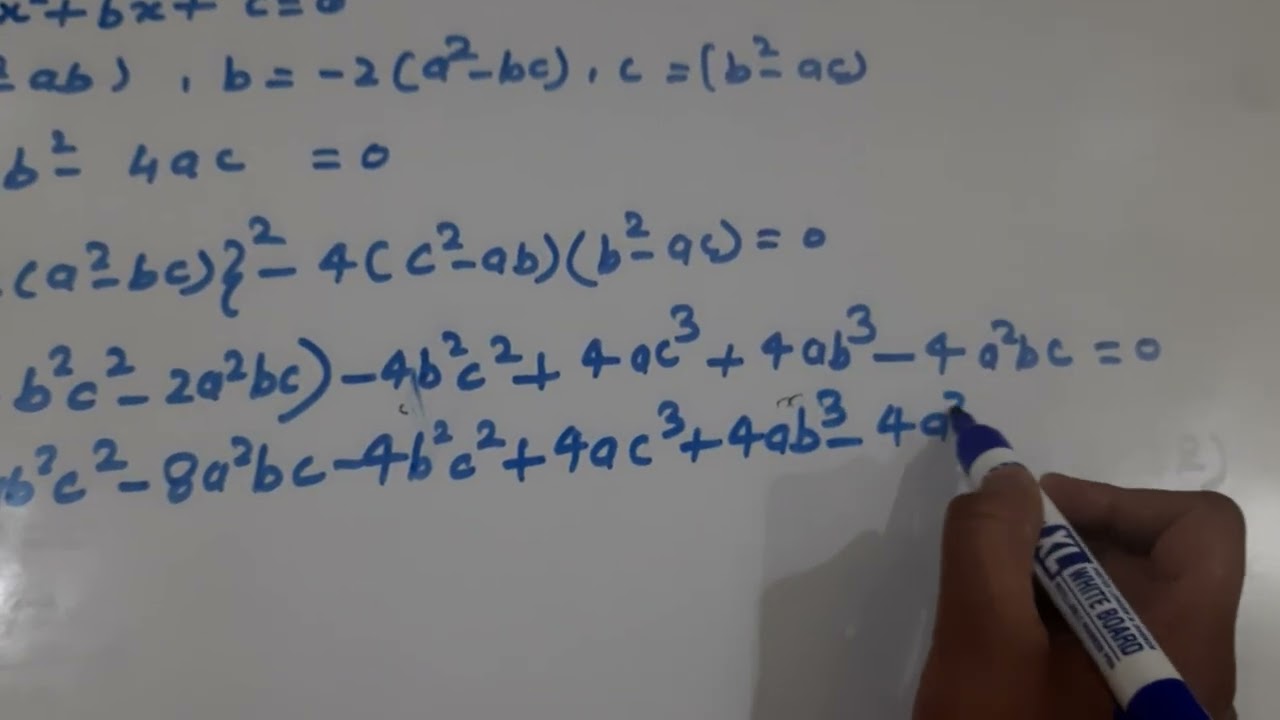 x² + bx + c = 0
² ab) , b = -2(a²-bc) , c = (b²- ac)
b²- 4ac = 0
(a²-bc)}²- 4(c²-ab)(b²-ac) = 0
b²c²- 2a²bc) - 4b²c² + 4ac³ + 4ab³ - 4a²bc = 0
b²c² - 8a²bc - 4b²c² + 4ac³ + 4ab³ - 4a²
XL WHITE BOARD